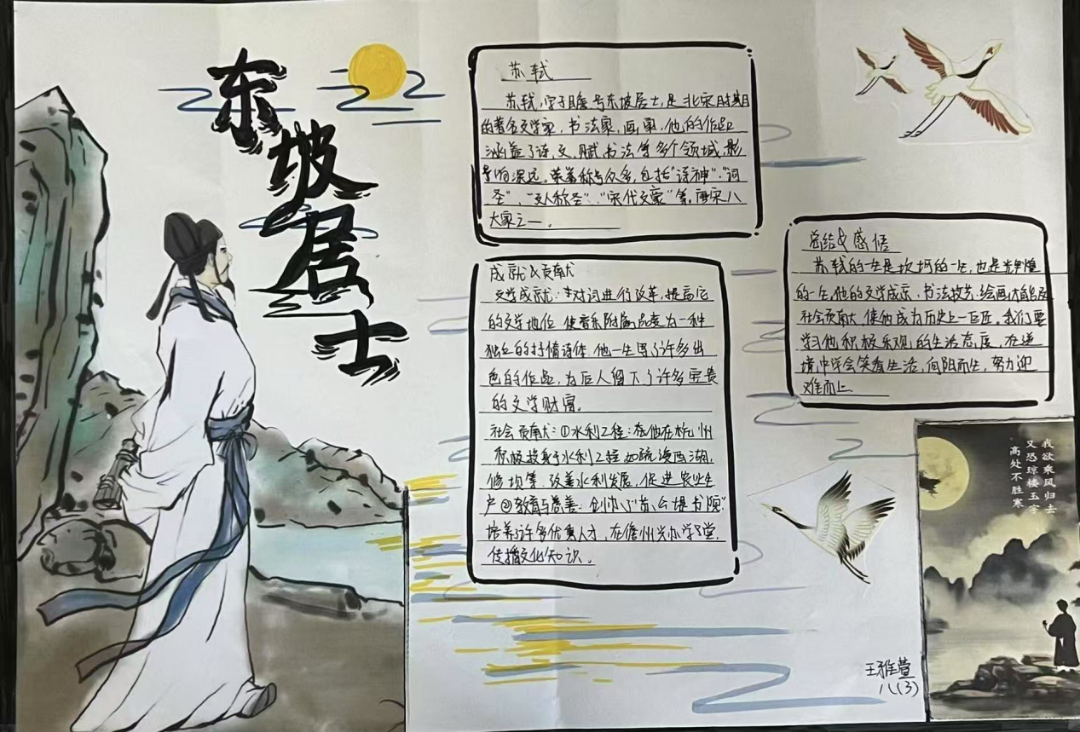 东坡居士
苏轼
苏轼,字子瞻号东坡居士,是北宋时期
的著名文学家,书法家,画家,他的作品
涵盖了诗,文,赋书法等多个领域,影
响深远,荣誉称号众多,包括"诗神"."词
圣"、"文人称圣"、"宋代文豪"等,唐宋八
大家之一。
成就&贡献
文学成就:对词进行改革,提高它
的文学地位,使音乐附属品变为一种
独立的抒情诗体,他一生写了许多出
色的作品,为后人留下了许多宝贵
的文学财富。
社会贡献:①水利工程:在他在杭州
积极投身于水利工程如疏浚西湖,
修坝等,改善水利发展,促进农业生
产②教育与慈善:创办了"苏公堤书院"
培养了许多优秀人才,在儋州兴办学堂,
传播文化知识。
总结&感悟
苏轼的一生是坎坷的一生,也是光辉
的一生,他的文学成就,书法技艺,绘画
社会贡献,使他成为历史上一巨匠,我们要
学习他积极乐观的生活态度,在逆
境中学会笑看生活,向阳而生,努力迎
难而上
我欲乘风归去
又恐琼楼玉宇
高处不胜寒
王雅萱
八(3)